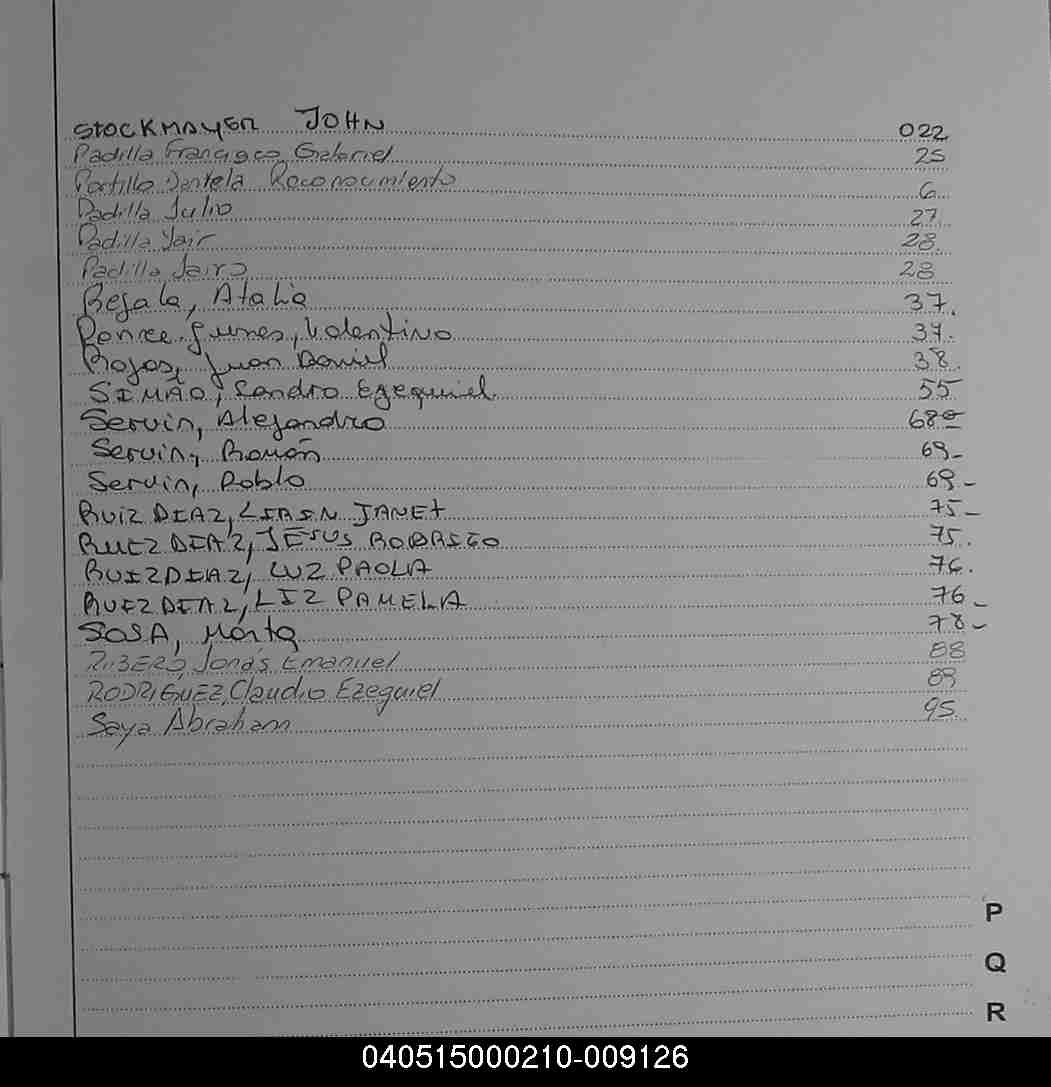 STOCKMAYER JOHN 022
Padilla Francisco Gabriel 25
Portillo Daniela Reconocimiento 6
Padilla Julio 27
Padilla Yair 28
Padilla Jairo 28
Regala, Atalia 37.
Ponce Gunes, Valentino 37.
Rojas, Juan Daniel 38.
SIMÃO, Sandro Ezequiel 55
Servin, Alejandro 68
Servin, Román 69-
Servin, Pablo 69-
RUIZ DIAZ, JANET 75-
RUIZ DIAZ, JESUS RODRIGO 75.
RUIZ DIAZ, LUZ PAOLA 76.
RUIZ DIAZ, LIZ PAMELA 76-
SOSA, Marta 78-
RIBERO, Jonás Emanuel 88
RODRIGUEZ, Claudio Ezequiel 89
Saya Abraham 95
P
Q
R
040515000210-009126